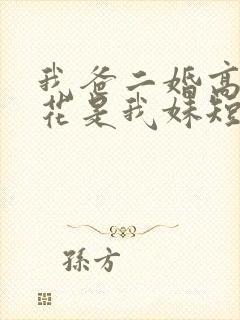 我爸二婚高
花是我妹短
孫方